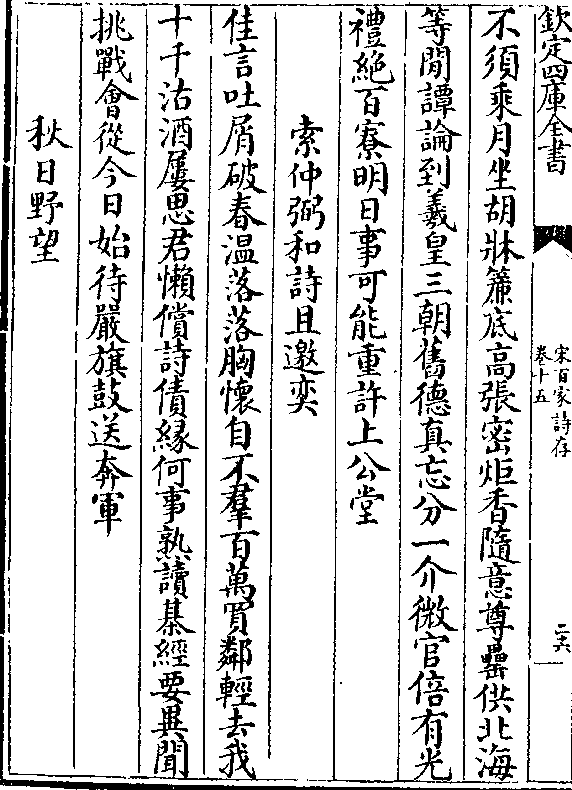 欽定四庫全書
宋百家詩存
卷十五
二六
不須乘月坐胡牀簾底高張密炬香隨意尊罍供北海
等閒譚論到羲皇三朝舊德真忘分一介微官倍有光
禮絕百寮明日事可能重許上公堂
索仲弼和詩且邀奕
佳言吐屑破春溫落落胸懷自不羣百萬買鄰輕去我
十千沽酒屢思君懶償詩債緣何事熟讀棊經要異聞
挑戰會從今日始待嚴旗鼓送奔軍
秋日野望